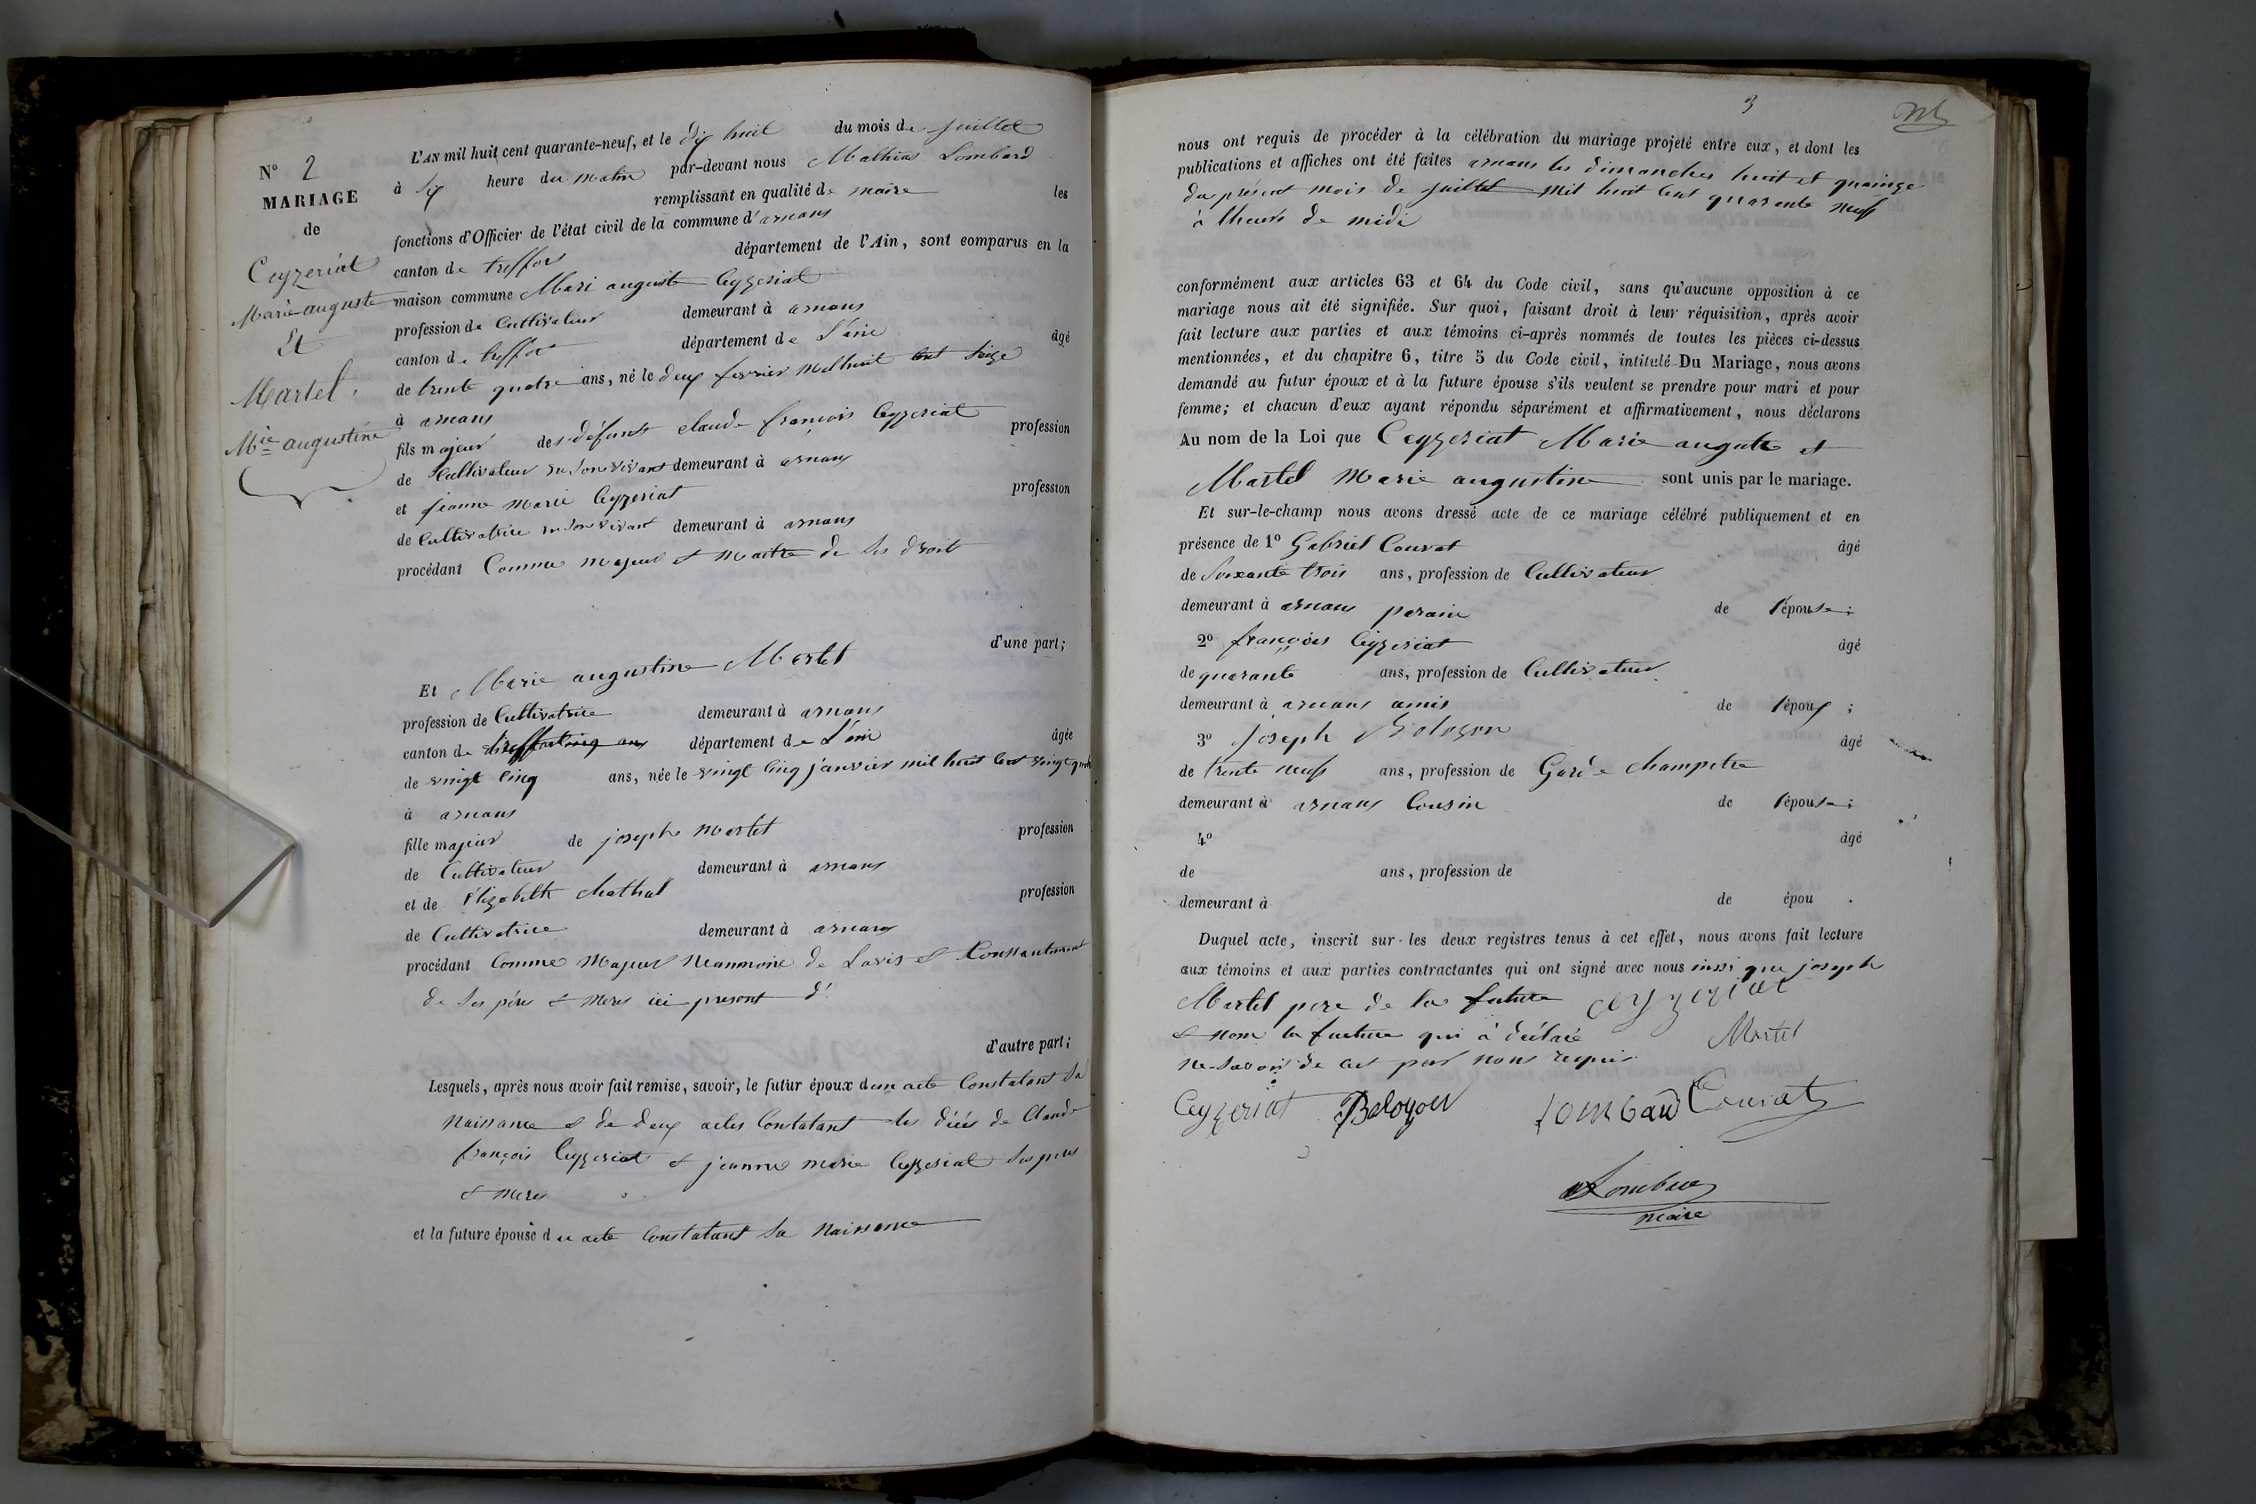 N° 2
MARIAGE
de
Ceyzeriat
Marie auguste
Et
Martel
Mie augustine
L'AN mil huit cent quarante-neuf, et le dix huit du mois de juillet
à six heure du matin par-devant nous Mathias Lombard
remplissant en qualité de maire les
fonctions d'Officier de l'état civil de la commune d'arnans
canton de treffort département de l'Ain, sont comparus en la
maison commune Mari auguste Ceyzeriat
profession de Cultivateur demeurant à arnans
canton de treffort département de L'ain âgé
de trente quatre ans, né le deux fevrier mil huit cent seize
à arnans
fils majeur des défunt claude françois Ceyzeriat profession
de Cultivateur en son vivant demeurant à arnans
et jeanne Marie Ceyzeriat profession
de Cultivatrice en son vivant demeurant à arnans
procédant Comme majeur et maitre de ses droit
d'une part;
Et Marie augustine Martel
profession de Cultivatrice demeurant à arnans
canton de département de L'ain âgée
de vingt cinq ans, née le vingt cinq janvier mil huit cent vingt quatre
à arnans
fille majeur de joseph Martel profession
de Cultivateur demeurant à arnans
et de Elizabeth Mathal profession
de Cultivatrice demeurant à arnans
procédant Comme Majeur Neanmoins de Lavis et Consentement
de ses père et Meres ici present d'
d'autre part;
Lesquels, après nous avoir fait remise, savoir, le futur époux d'un acte Constatant sa
Naissance et de deux actes Constatant les décés de Claude
françois Ceyzeriat et jeanne marie Ceyzeriat ses peres
et Meres
et la future épouse d'un acte Constatant sa Naissance
3
nous ont requis de procéder à la célébration du mariage projeté entre eux, et dont les
publications et affiches ont été faites arnans les dimanches huit et quainze
du présent mois de juillet mil huit cent quarante neuf
à lheure de midi
conformément aux articles 63 et 64 du Code civil, sans qu'aucune opposition à ce
mariage nous ait été signifiée. Sur quoi, faisant droit à leur réquisition, après avoir
fait lecture aux parties et aux témoins ci-après nommés de toutes les pièces ci-dessus
mentionnées, et du chapitre 6, titre 5 du Code civil, intitulé Du Mariage, nous avons
demandé au futur époux et à la future épouse s'ils veulent se prendre pour mari et pour
femme; et chacun d'eux ayant répondu séparément et affirmativement, nous déclarons
Au nom de la Loi que Ceyzeriat Marie auguste et
Martel Marie augustine sont unis par le mariage.
Et sur-le-champ nous avons dressé acte de ce mariage célébré publiquement et en
présence de 1° Gabriel Couvat âgé
de soixante trois ans, profession de Cultivateur
demeurant à arnans parain de l'épouse;
2° françois Ceyzeriat âgé
de quarante ans, profession de Cultivateur
demeurant à arnans amis de l'époux;
3° joseph Bologon âgé
de trente neuf ans, profession de Garde champetre
demeurant à arnans Cousin de l'épouse;
4° âgé
de ans, profession de
demeurant à de épou .
Duquel acte, inscrit sur les deux registres tenus à cet effet, nous avons fait lecture
aux témoins et aux parties contractantes qui ont signé avec nous insi que joseph
Martel pere de la future ceyzeriat
et Nom la future qui à déclaré Martel
ne savoir de cet par nous requis
Ceyzeriat Bologon Lombard Couvat
Lombard
maire